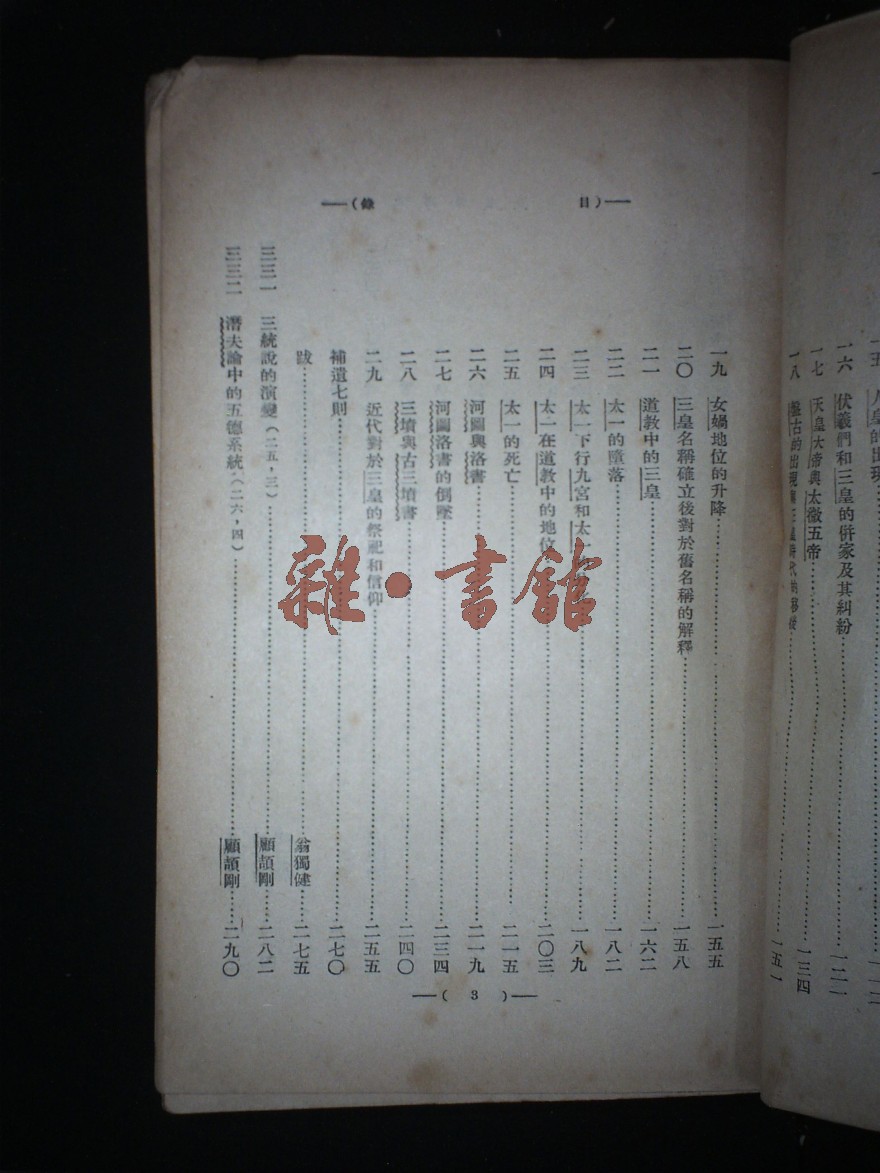 人皇的出現
一六 伏羲們和三皇的併家及其糾紛 一二一
一七 天皇大帝與太微五帝 一三四
一八 盤古的出現與三皇時代的移後 一五一
目)
(錄
一九 女媧地位的升降 一五五
二〇 三皇名稱確立後對於舊名稱的解釋 一五八
二一 道教中的三皇 一六二
二二 太一的墮落 一八二
二三 太一下行九宮和太一 一八九
二四 太一在道教中的地位 二〇三
二五 太一的死亡 二一五
二六 河圖與洛書 二一九
二七 河圖洛書的倒墜 二三四
二八 三墳與古三墳書 二四〇
二九 近代對於三皇的祭祀和信仰 二五五
補遺七則 二七〇
跋 翁獨健 二七五
三三一 三統說的演變(二五,三) 顧頡剛 二八二
三三二 潛夫論中的五德系統(二六,四) 顧頡剛 二九〇
( 3 )
雜·書館